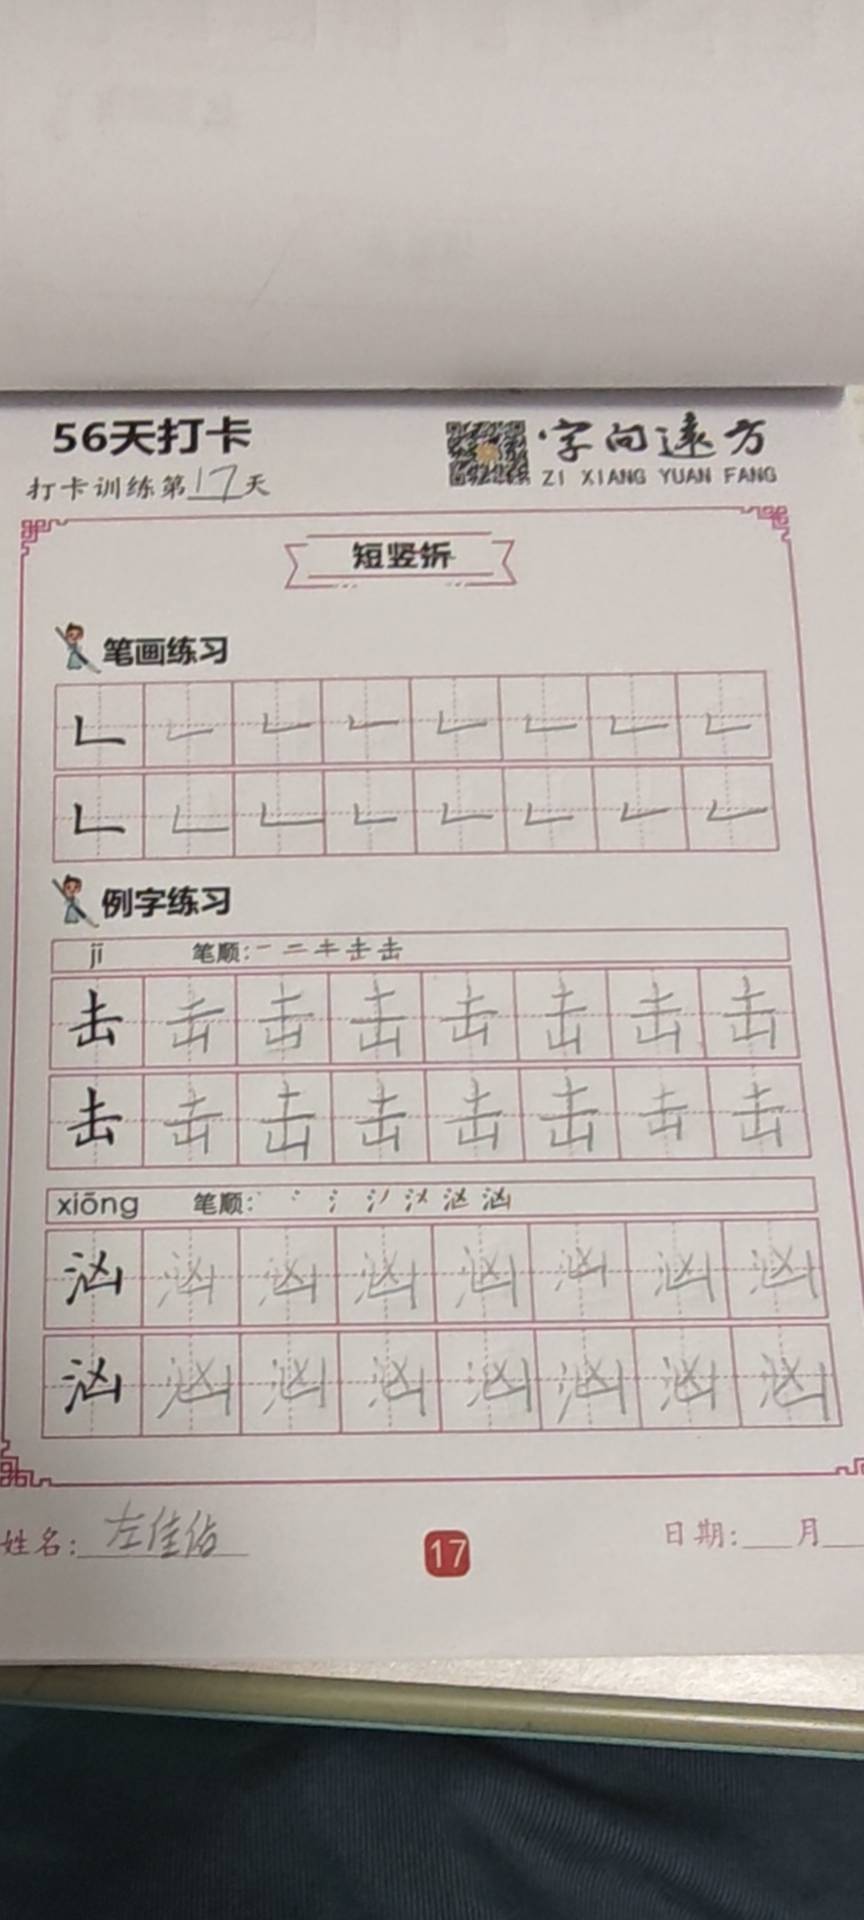 56天打卡
字向远方
打卡训练第17天
ZI XIANG YUAN FANG
短竖折
笔画练习
𠃊 𠃊 𠃊 𠃊 𠃊 𠃊 𠃊 𠃊
𠃊 𠃊 𠃊 𠃊 𠃊 𠃊 𠃊 𠃊
例字练习
jī 笔顺: 一 二 キ 击 击
击 击 击 击 击 击 击 击
击 击 击 击 击 击 击 击
xiōng 笔顺: 丶 冫 氵 汹 汹
汹 汹 汹 汹 汹 汹 汹 汹
汹 汹 汹 汹 汹 汹 汹 汹
姓名: 左佳佑
17
日期: 月